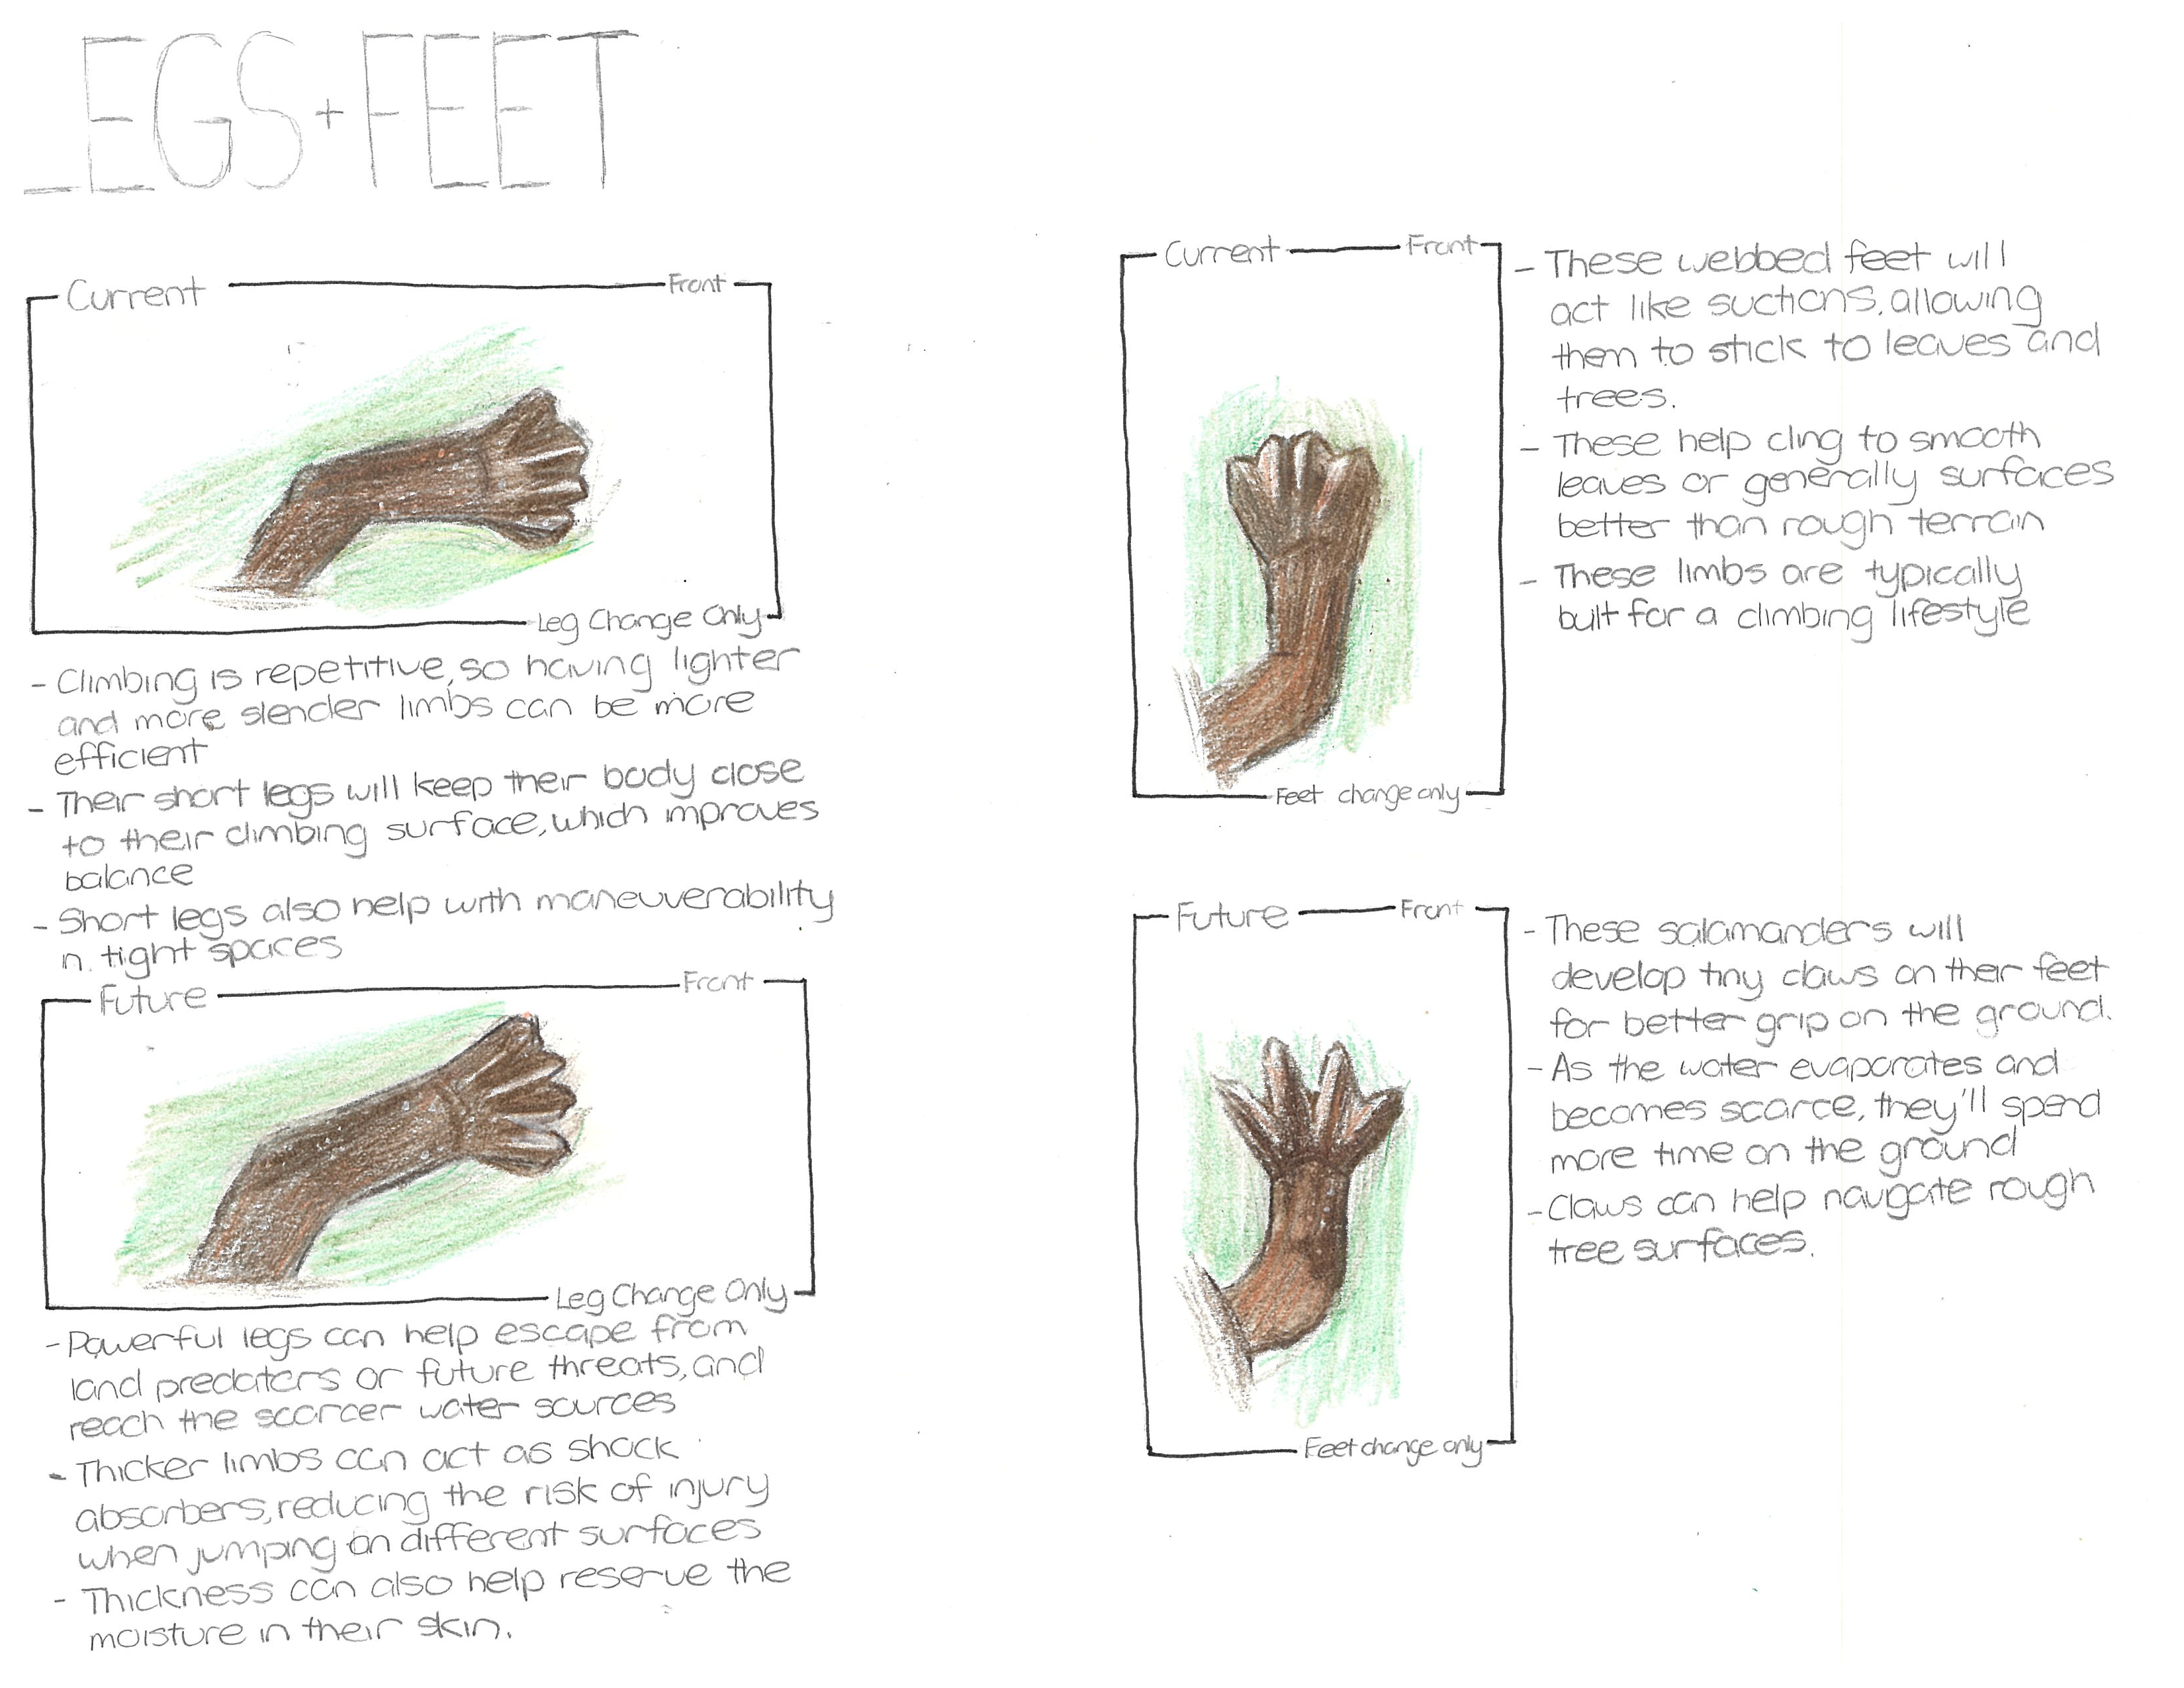 LEGS+FEET
Current
Front
Leg Change Only
- Climbing is repetitive, so having lighter
and more slender limbs can be more
efficient
- Their short legs will keep their body close
to their climbing surface, which improves
balance
- Short legs also help with maneuverability
in tight spaces
Future
Front
Leg Change Only
- Powerful legs can help escape from
land predators or future threats, and
reach the scarcer water sources
- Thicker limbs can act as shock
absorbers, reducing the risk of injury
when jumping on different surfaces
- Thickness can also help reserve the
moisture in their skin.
Current
Front
Feet change only
- These webbed feet will
act like suctions, allowing
them to stick to leaves and
trees.
- These help cling to smooth
leaves or generally surfaces
better than rough terrain
- These limbs are typically
built for a climbing lifestyle
Future
Front
Feet change only
- These salamanders will
develop tiny claws on their feet
for better grip on the ground.
- As the water evaporates and
becomes scarce, they'll spend
more time on the ground
- Claws can help navigate rough
tree surfaces.